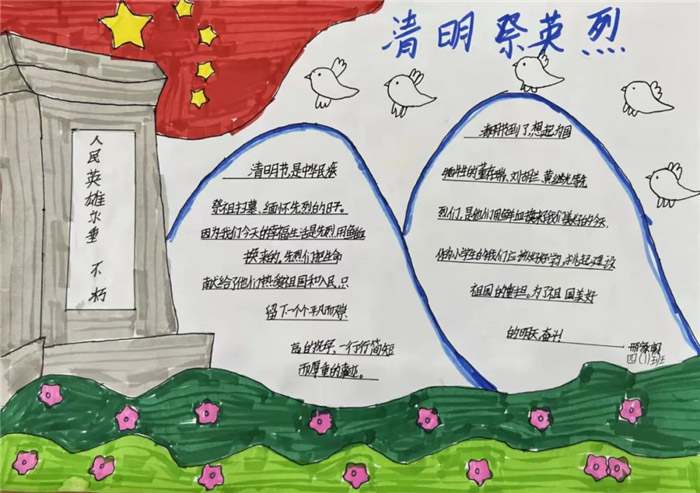 清明祭英烈
人民英雄永垂不朽
清明节,是中华民族
祭祖扫墓、缅怀先烈的日子。
因为我们今天的幸福生活是先烈用鲜血
换来的。先烈们把生命
献给了他们热爱祖国和人民,只
留下一个个平凡而
的 一行行简短
而厚重的
清明节到了,想起为国
牺牲的董存瑞、刘胡兰、黄继光等先
烈们,是他们用鲜血换来我们美好的今天,
作为小学生的我们应 好好学习,担起建设
祖国的重担,为了祖国美好
的明天奋斗
四(1)班